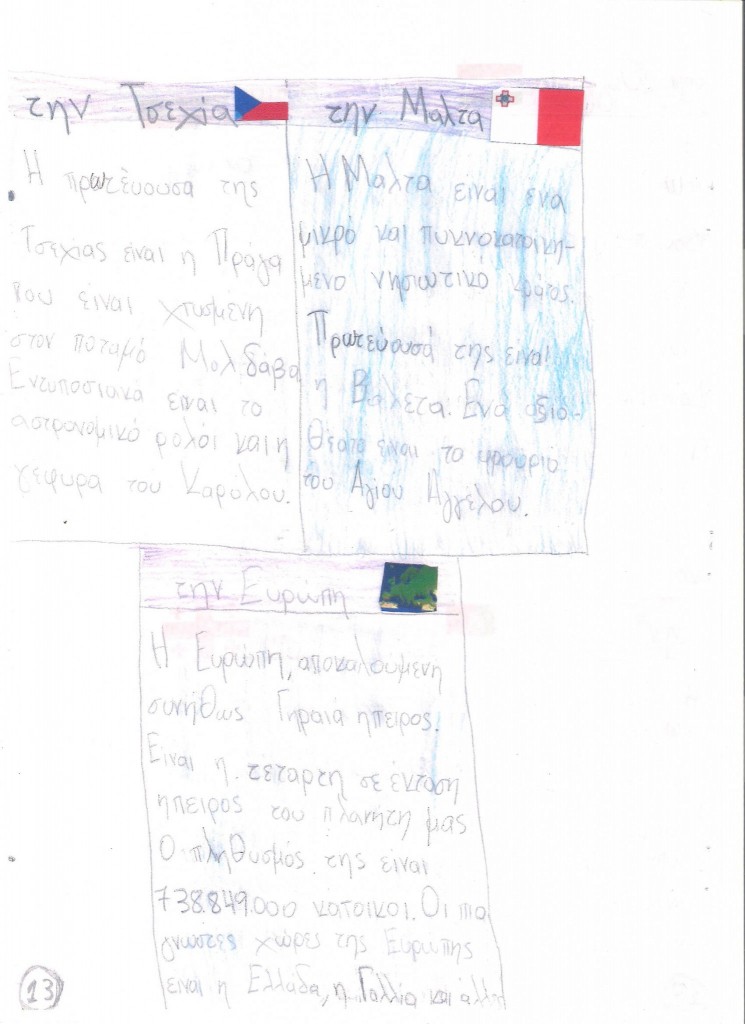 την Τσεχία
Η πρωτέυουσα της
Τσεχίας είναι η Πράγα
που έιναι χτισμένη
στον ποταμό Μολδάβα
Εντυποσιακά ειναι το
αστρονομικό ρολόι και η
γεφυρα του Καρόλου.
την Μαλτα
Η Μαλτα ειναι ενα
μικρό και πυκνοκατοικη-
μενο νησιωτικο κράτος.
Πρωτεύουσά της ειναι
η Βαλετα. Ενα αξιο-
θεατο ειναι το φρουριο
του Αγιου Αγγελου.
την Ευρώπη
Η Ευρώπη, αποκαλουμενη
συνήθως Γηραιά ηπειρος.
Ειναι η τεταρτη σε έκταση
ηπειρος του πλανητη μας
Ο πληθυσμός της είναι
738.849.000 κατοικοι. Οι πιο
γνωστες χώρες της Ευρώπης
ειναι η Ελλάδα, η Γαλλία και άλλη
13